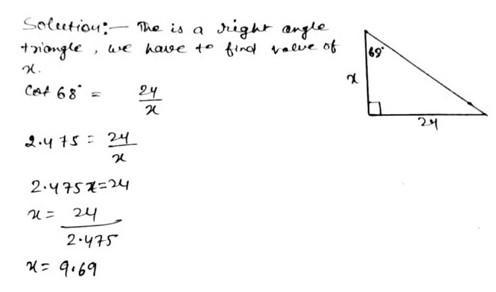 Solution:- The is a right angle
triangle, we have to find value of
x.
Cot 68° = 24/x
2.475 = 24/x
2.475x=24
x = 24/2.475
x = 9.69
68°
x
24